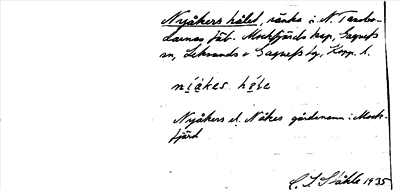 Nyåkers håled, sänka i N. Tansbo-
darnas fäb. Mockfjärds kap, Gagnefs
sn, Leksands o Gagnefs tg, Kopp. l.
niåkes hôle
Nyåkers el. Nåkes gårdsnamn i Mock-
fjärd
1935